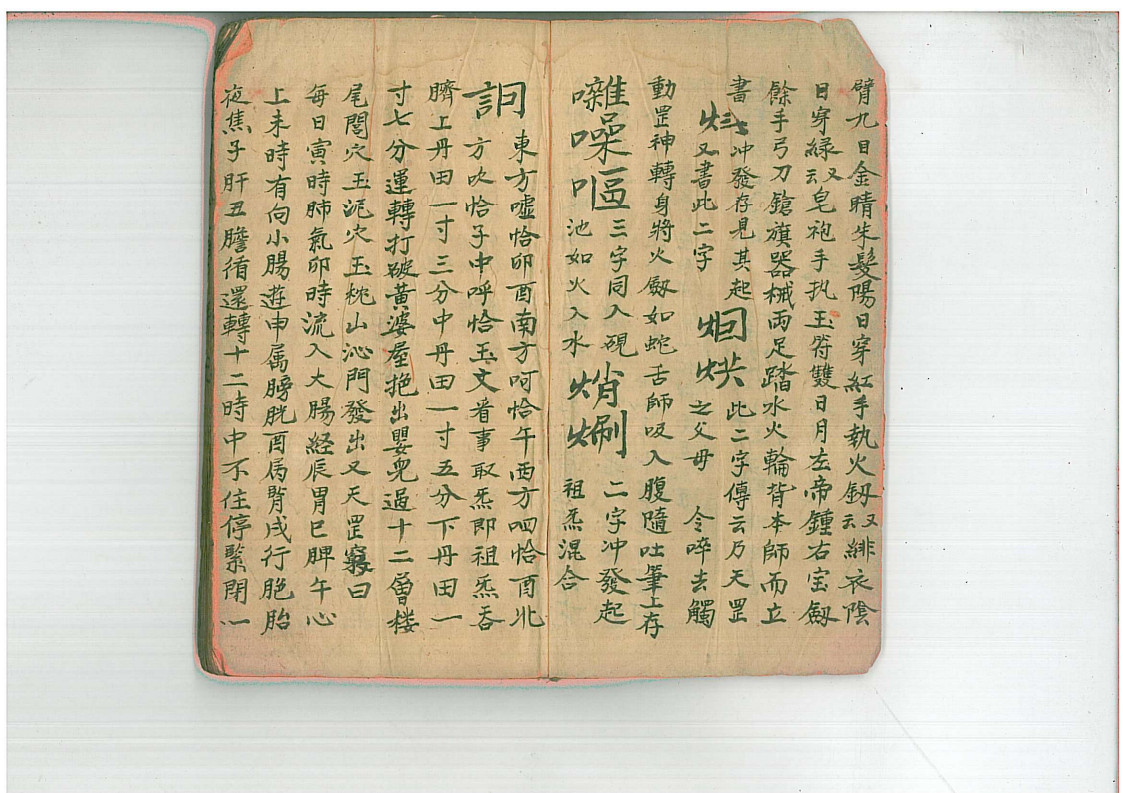 臂九目金睛朱髮陽日穿紅手執火劔又云緋衣陰
日穿綠又云皂袍手执玉符雙日月左帝鍾右宝劔
餘手弓刀鎗旗器械両足踏水火輪背本師而立
書 冲發存見其起 此二字傳云乃天罡
又書此二字 之父母 令啐去觸
動罡神轉身將火劔如蛇舌師吸入腹隨吐筆上存
囃噪嘔 三字同入硯 二字冲發起
池如火入水 祖炁混合
東方噓恰卯酉南方呵恰午西方呬恰酉北
方吹恰子中呼恰玉文看事取炁即祖炁吞
臍上丹田一寸三分中丹田一寸五分下丹田一
寸七分運轉打破黃婆屋抱出嬰兒過十二曾楼
尾閭穴玉泥穴玉枕山沁門發出又天罡竅曰
每日寅時肺氣卯時流入大腸経辰胃巳脾午心
上未時有向小腸遊申属膀胱酉属腎戌行胞胎
夜焦子肝丑膽循還轉十二時中不住停緊閉一